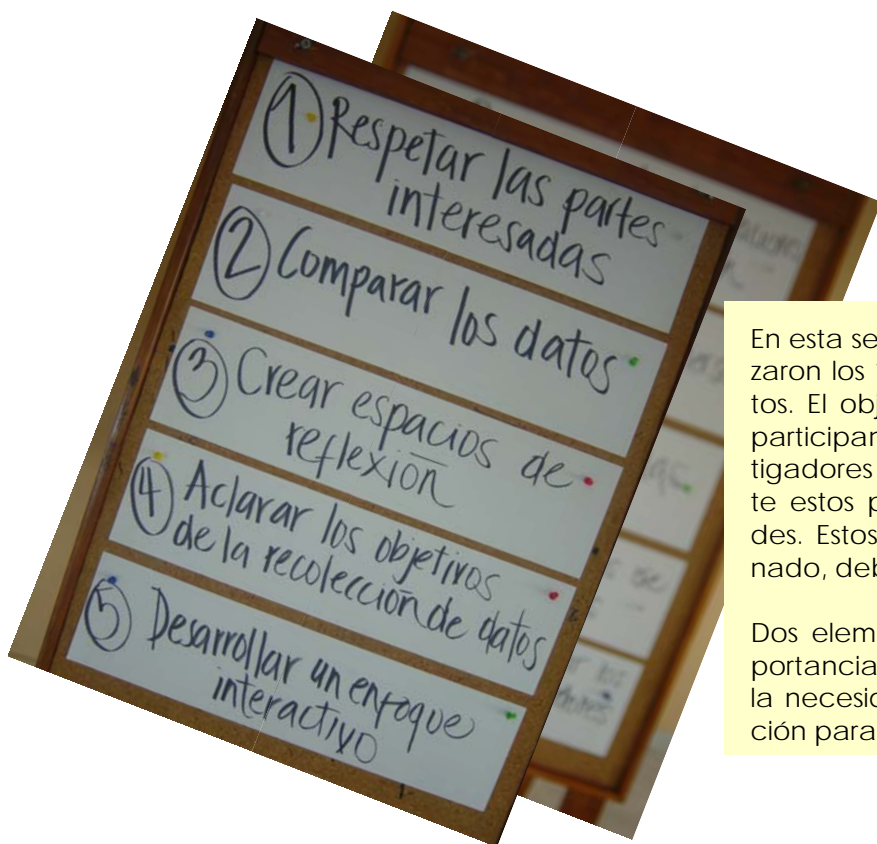 ① Respetar las partes
interesadas
② Comparar los datos
③ Crear espacios de
reflexión
④ Aclarar los objetivos
de la recolección de datos
⑤ Desarrollar un enfoque
interactivo
En esta se
zaron los
tos. El obj
participar
tigadores
te estos p
des. Estos
nado, deb
Dos elem
portancia
la necesid
ción para